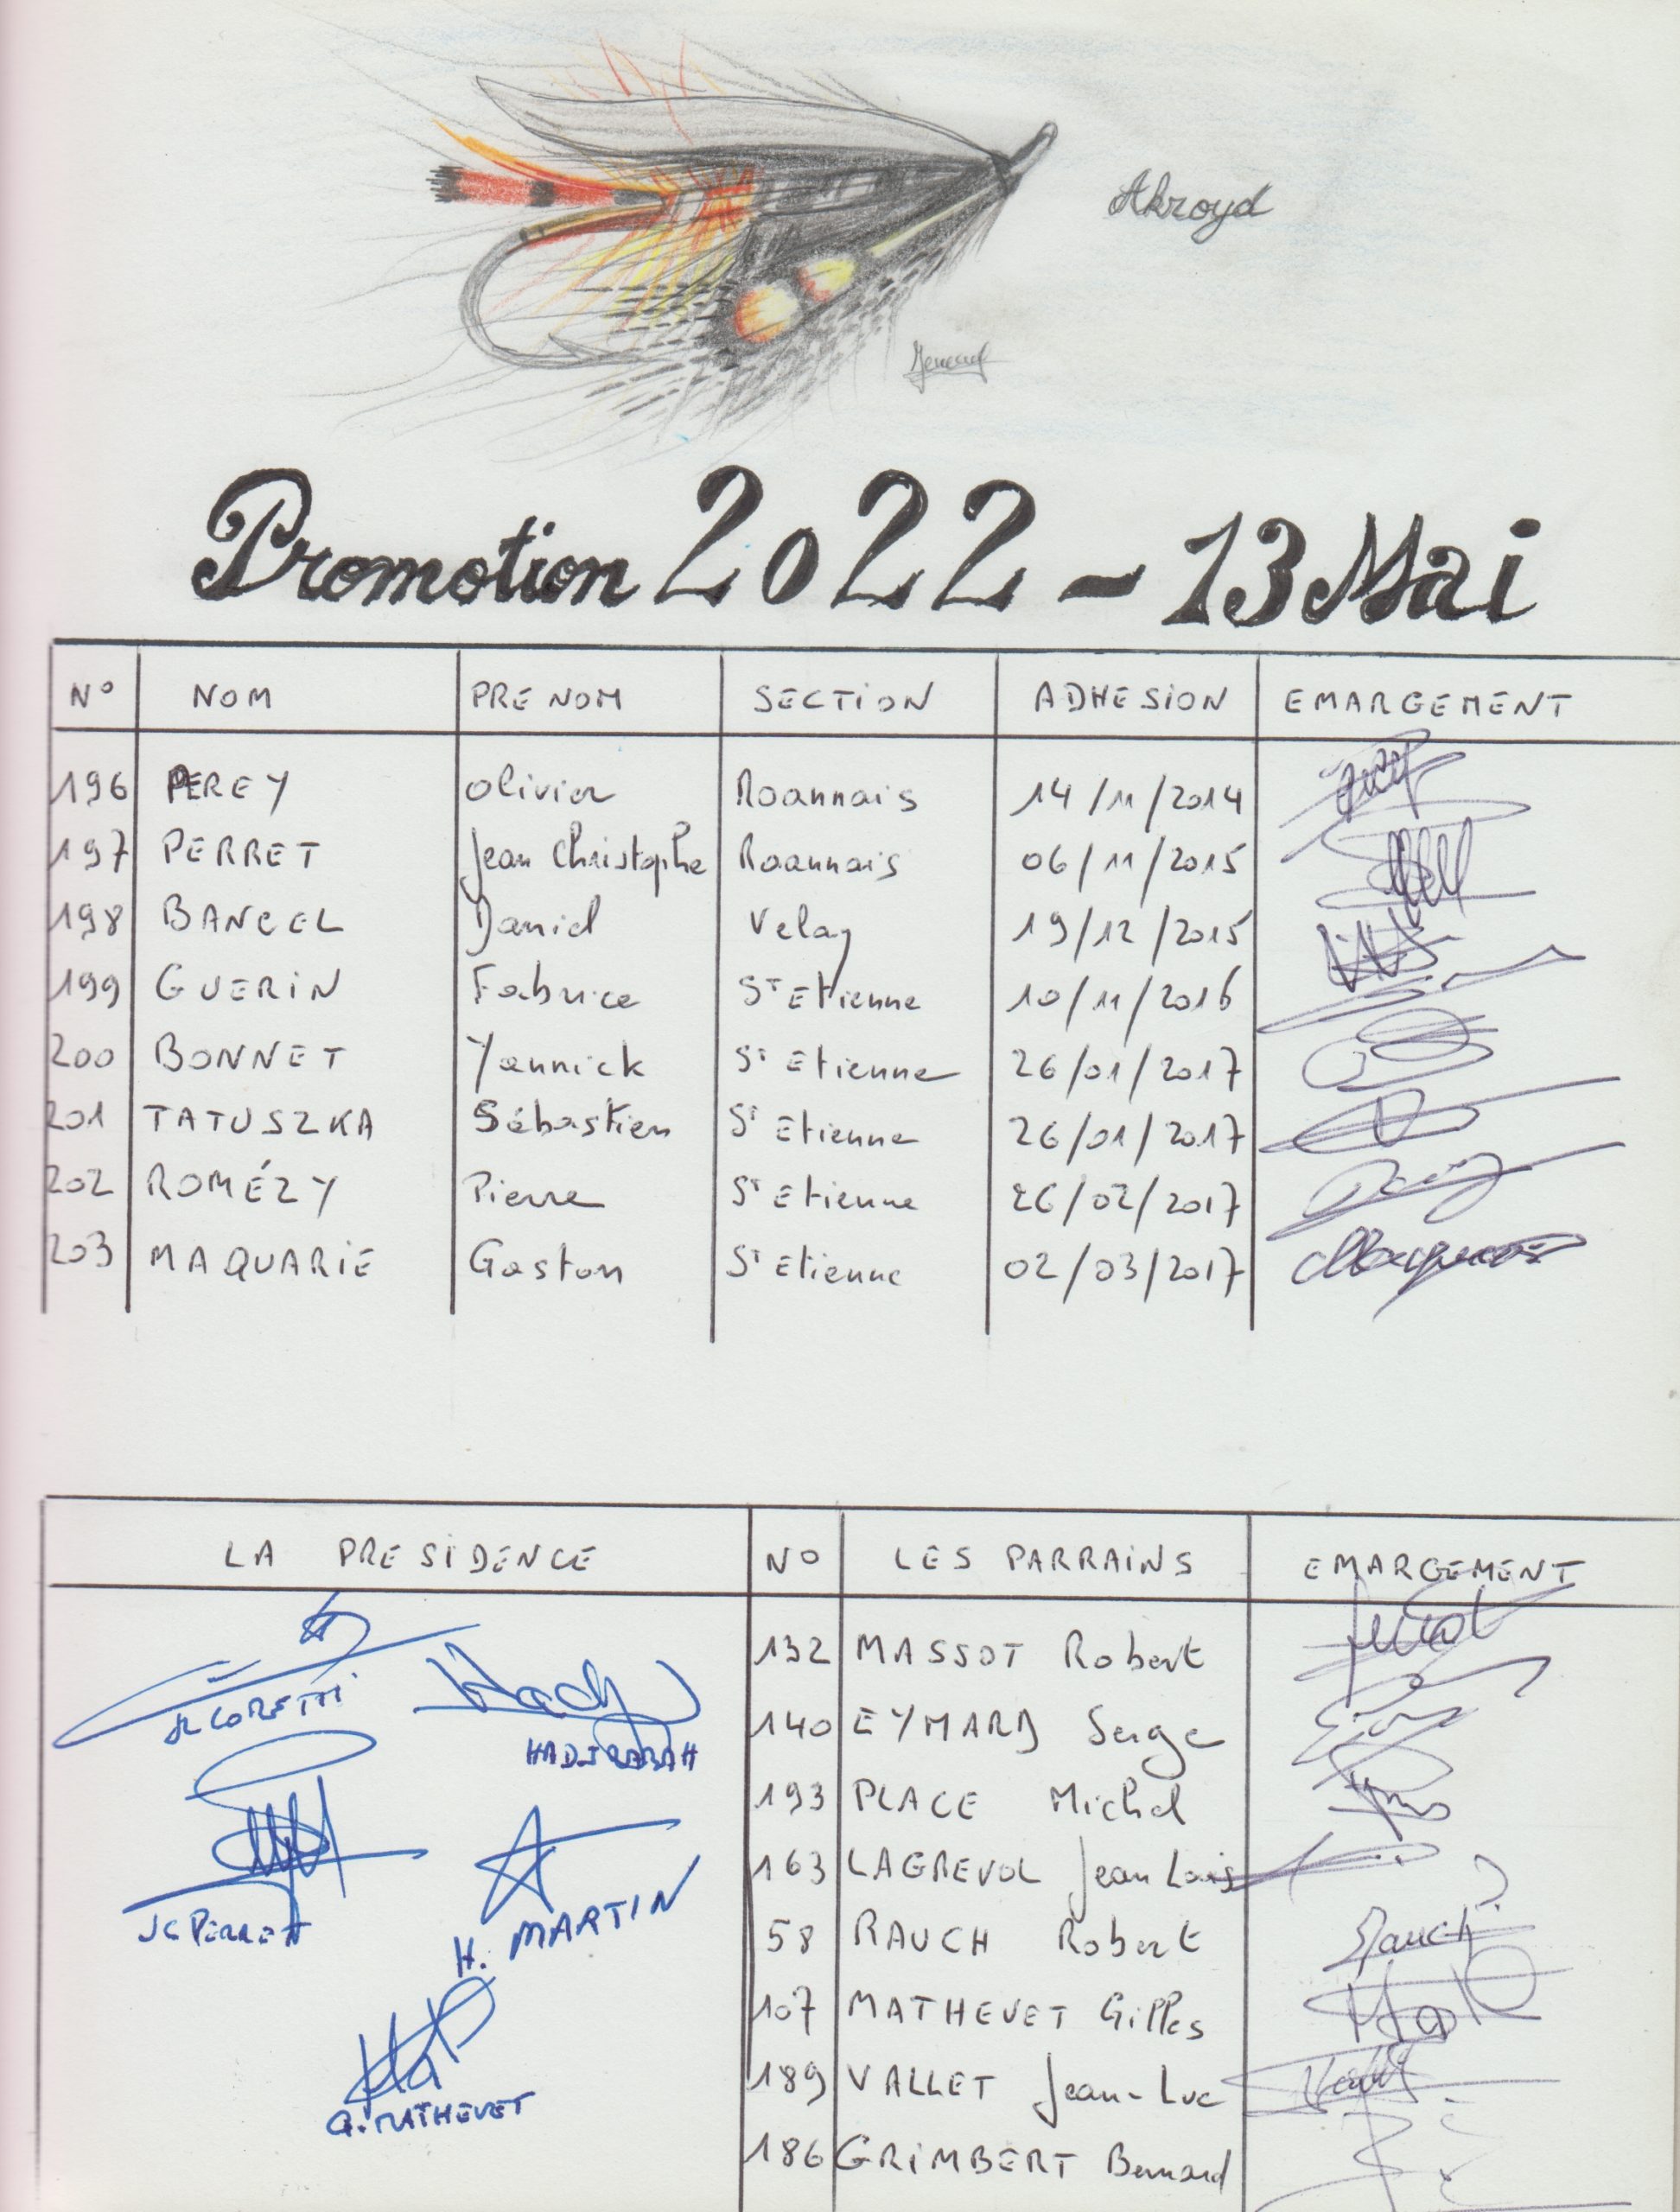 Akroyd
Promotion 2022 - 13 Mai
N° NOM PRENOM SECTION ADHESION EMARGEMENT
196 PEREY Olivier Roannais 14/11/2014
197 PERRET Jean Christophe Roannais 06/11/2015
198 BANCEL Daniel Velay 19/12/2015
199 GUERIN Fabrice St Etienne 10/11/2016
200 BONNET Yannick St Etienne 26/01/2017
201 TATUSZKA Sébastien St Etienne 26/01/2017
202 ROMÉZY Pierre St Etienne 26/02/2017
203 MAQUARIE Gaston St Etienne 02/03/2017
LA PRESIDENCE N° LES PARRAINS EMARGEMENT
132 MASSOT Robert
140 EYMARD Serge
193 PLACE Michel
163 LAGREVOL Jean Louis
58 RAUCH Robert Rauch
107 MATHEVET Gilles
189 VALLET Jean-Luc
186 GRIMBERT Bernard
CORETTI
HADJ RABAH
JC PERRET
H. MARTIN
G. MATHEVET